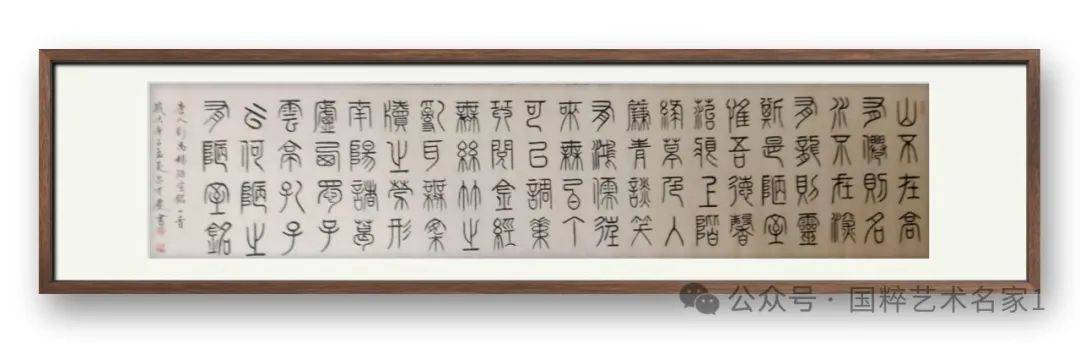 山不在高
有僊則名
水不在深
有龍則靈
斯是陋室
惟吾德馨
苔痕上階
綠草色入
簾青談笑
有鴻儒往
來無白丁
可以調素
琴閱金經
無絲竹之
亂耳無案
牘之勞形
南陽諸葛
廬西蜀子
雲亭孔子
云何陋之
有陋室銘
唐人劉禹錫陋室銘一首
歲次書
公众号 · 国粹艺术名家1